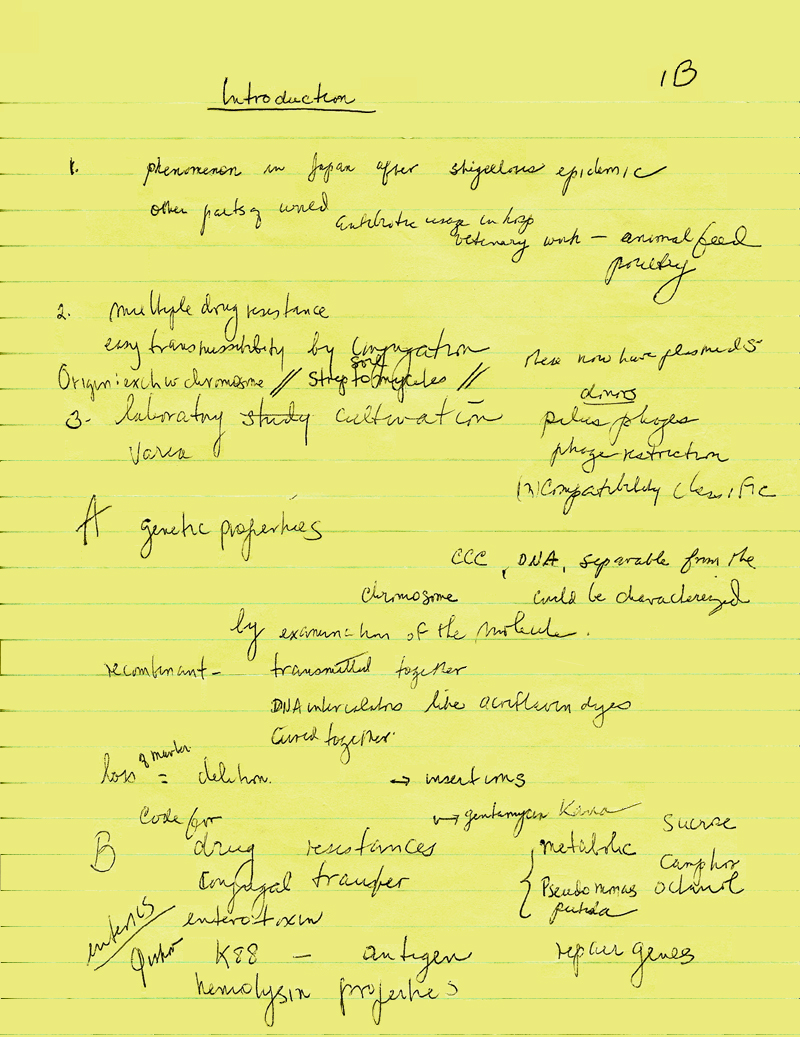 1B
Introduction
1. phenomenon in Japan after shigellosis epidemic
other parts of world
antibiotic usage in hosp
vetenary work — animal feed
poultry
2. multiple drug resistance
easy transmissibility by conjugation
these now have plasmids
soil
Origin: exch w chromosome // Streptomycetes //
donors
3. laboratory study cultivation
pilus phages
phage restriction
(in)compatibility classific
A genetic properties
CCC, DNA, separable from the
chromosome could be characterized
by examination of the molecule.
recombinant — transmitted together
DNA intercalators like acriflavin dyes
cured together.
of marker
loss = deletion. → insertions
Code for → gentamycin Kana
Sucrose
B drug resistances
metabolic
Camphor
conjugal transfer
Pseudomonas octanol
putida
enterics
enterotoxin
K88 — antigen repair genes
hemolysin properties